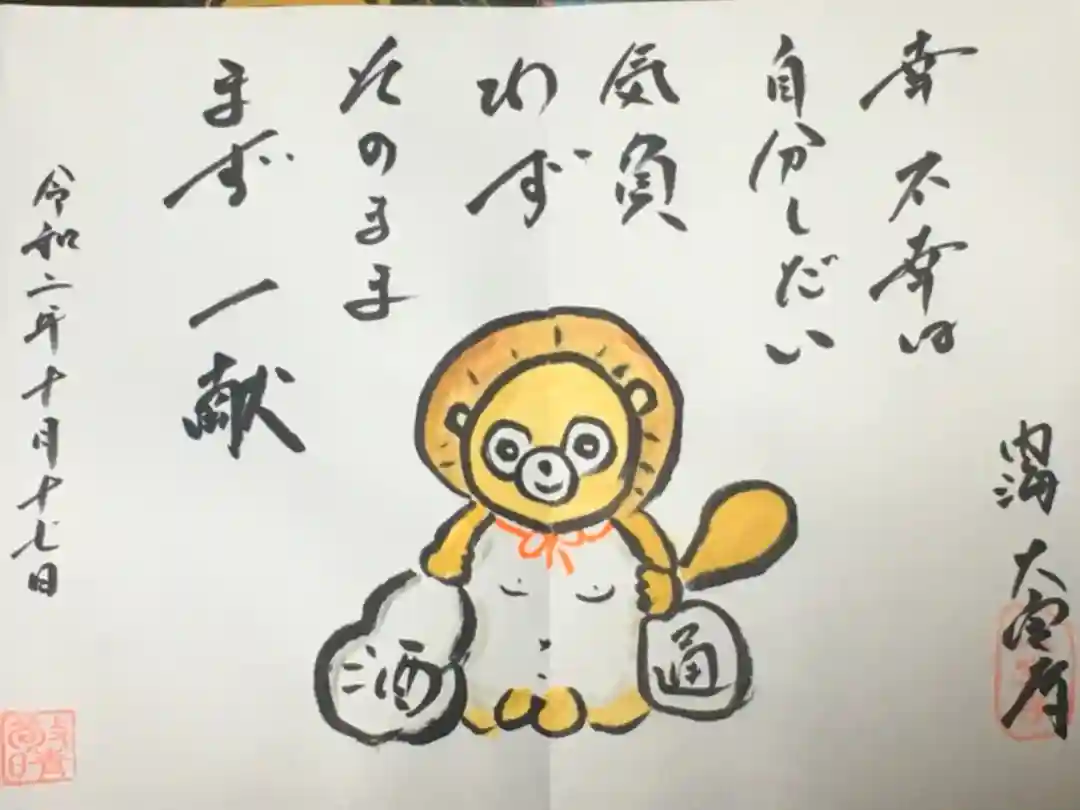 幸 不幸は
自分しだい
気負
わず
そのまま
まず 一献
令和二年十月十七日
酒
通